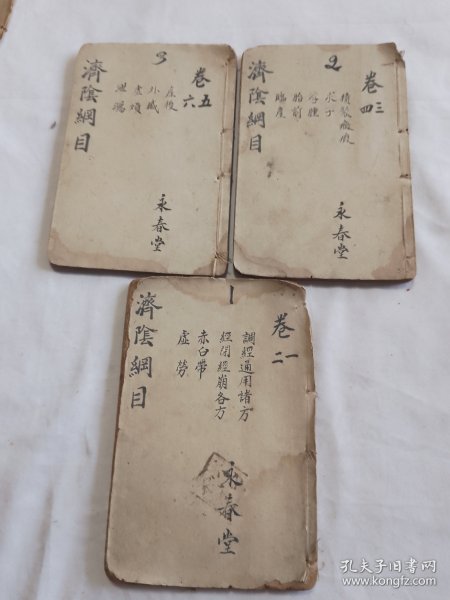 3
卷五
六
產後
外感
虛煩
濟陰綱目
永春堂
2
卷三
四
積聚癥瘕
求子
浮腫
胎前
臨產
濟陰綱目
永春堂
1
卷一
二
調經通用諸方
經閉經崩各方
赤白帶
虛勞
濟陰綱目
永春堂
孔夫子旧书网
www.kongfz.com